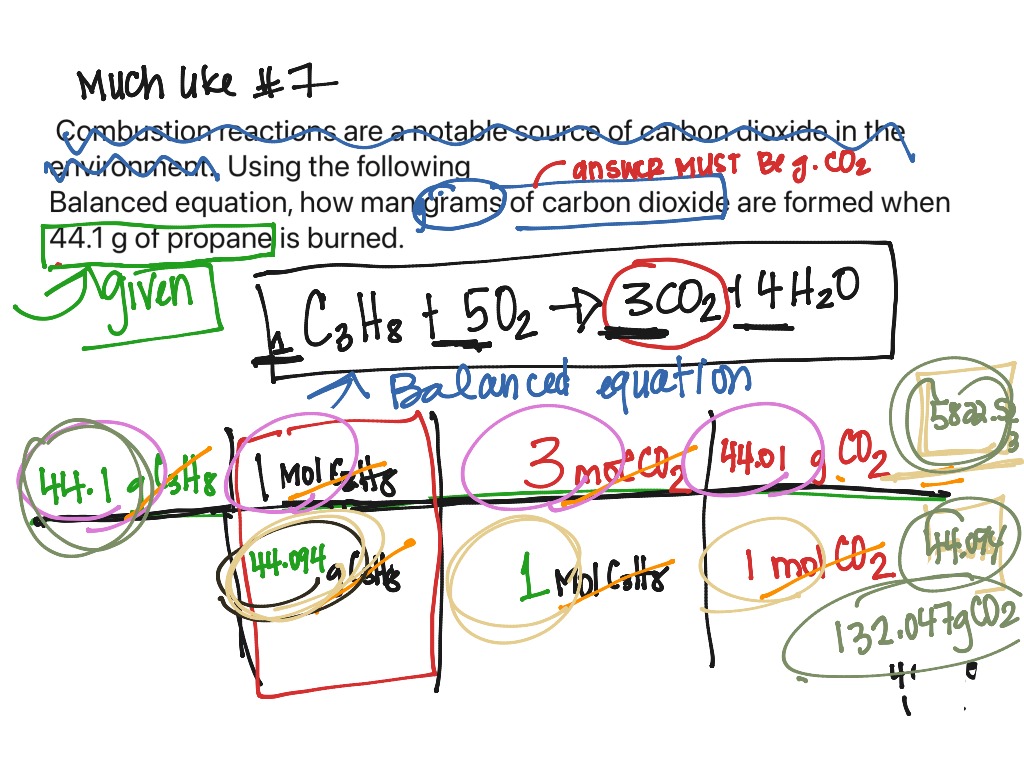 Much like #7
Combustion reactions are a notable source of carbon dioxide in the
environment. Using the following
answer must be g. CO2
Balanced equation, how many grams of carbon dioxide are formed when
44.1 g of propane is burned.
given
1 C3H8 + 5O2 → 3CO2 + 4H2O
Balanced equation
44.1 g C3H8 1 Mol C3H8 3 mol CO2 44.01 g CO2
44.094 g C3H8 1 Mol C3H8 1 mol CO2 44.094
132.047gCO2